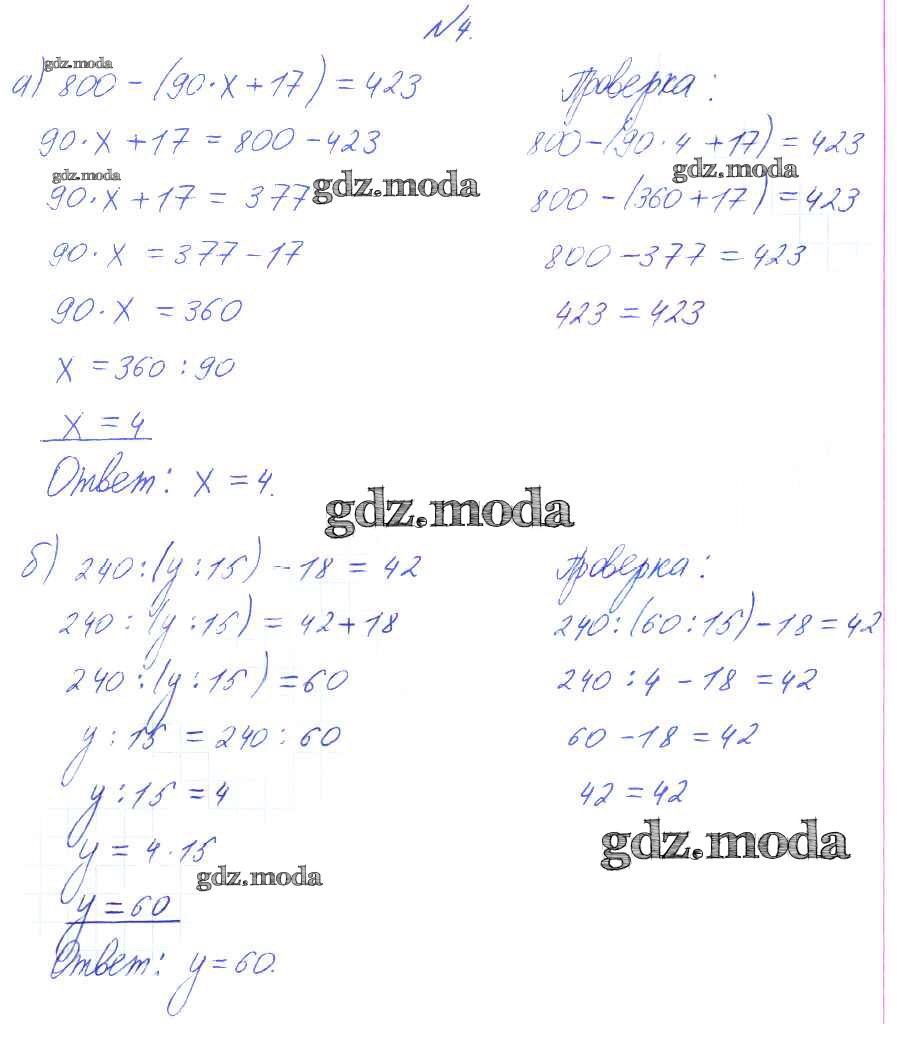 №4.
gdz.moda
а) 800 - (90·x + 17) = 423
90·x + 17 = 800 - 423
gdz.moda
90·x + 17 = 377
gdz.moda
90·x = 377 - 17
90·x = 360
x = 360 : 90
x = 4
Ответ: x = 4.
Проверка:
800 - (90·4 + 17) = 423
gdz.moda
800 - (360 + 17) = 423
800 - 377 = 423
423 = 423
gdz.moda
б) 240 : (y : 15) - 18 = 42
240 : (y : 15) = 42 + 18
240 : (y : 15) = 60
y : 15 = 240 : 60
y : 15 = 4
y = 4·15
gdz.moda
y = 60
Ответ: y = 60.
Проверка:
240 : (60 : 15) - 18 = 42
240 : 4 - 18 = 42
60 - 18 = 42
42 = 42
gdz.moda